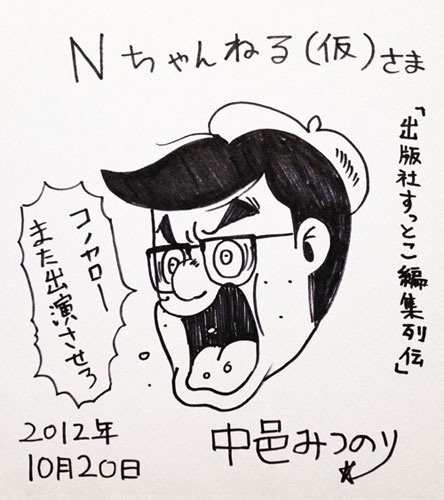 Nちゃんねる(仮)さま
「出版社すっとこ編集列伝」
コノヤロー
また出演させろ
2012年
10月20日
中邑みつのり